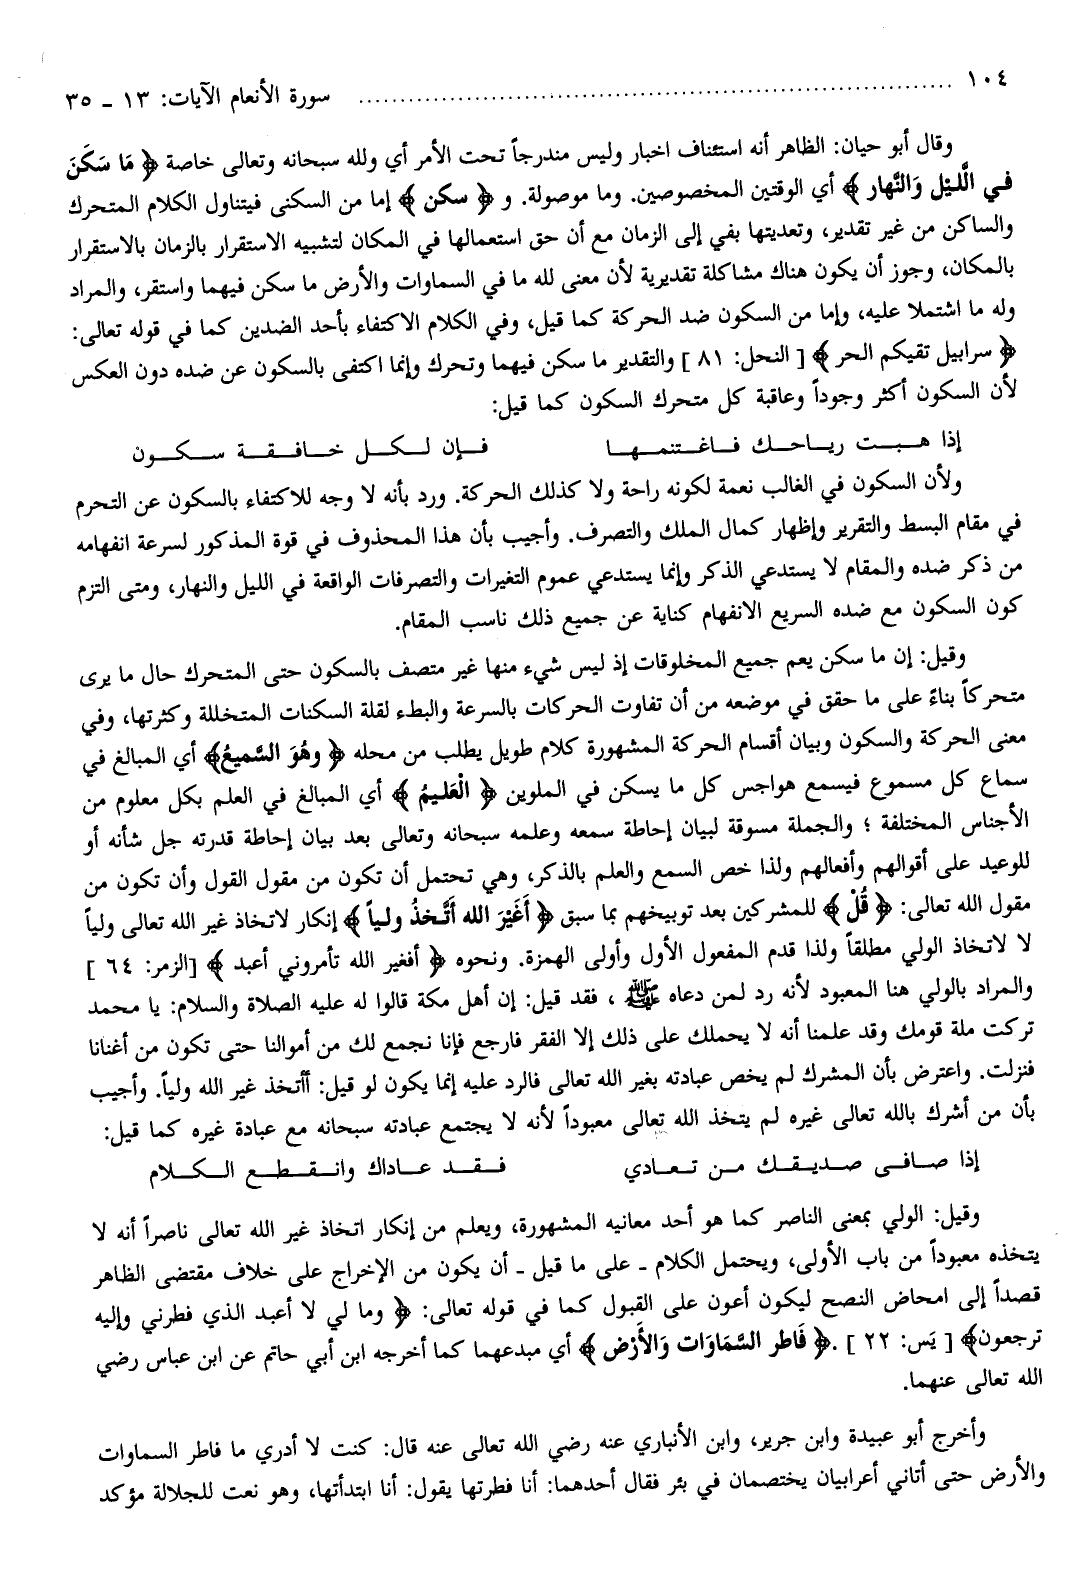 ١٠٤ ........ سورة الأنعام الآيات: ١٣ ـ ٣٥
وقال أبو حيان: الظاهر أنه استئناف اخبار وليس مندرجاً تحت الأمر أي ولله سبحانه وتعالى خاصة ﴿ مَا سَكَنَ
في اللَّيْل وَالنَّهار ﴾ أي الوقتين المخصوصين. وما موصولة. و ﴿ سكن ﴾ إما من السكنى فيتناول الكلام المتحرك
والساكن من غير تقدير، وتعديتها بفي إلى الزمان مع أن حق استعمالها في المكان لتشبيه الاستقرار بالزمان بالاستقرار
بالمكان، وجوز أن يكون هناك مشاكلة تقديرية لأن معنى لله ما في السماوات والأرض ما سكن فيهما واستقر، والمراد
وله ما اشتملا عليه، وإما من السكون ضد الحركة كما قيل، وفي الكلام الاكتفاء بأحد الضدين كما في قوله تعالى:
﴿ سرابيل تقيكم الحر ﴾ [ النحل: ٨١ ] والتقدير ما سكن فيهما وتحرك وإنما اكتفى بالسكون عن ضده دون العكس
لأن السكون أكثر وجوداً وعاقبة كل متحرك السكون كما قيل:
إذا هـبـت ريـاحـك فـاغـتنمـهـا فـإن لـكـل خـافـقـة سـكـون
ولأن السكون في الغالب نعمة لكونه راحة ولا كذلك الحركة. ورد بأنه لا وجه للاكتفاء بالسكون عن التحرم
في مقام البسط والتقرير وإظهار كمال الملك والتصرف. وأجيب بأن هذا المحذوف في قوة المذكور لسرعة انفهامه
من ذكر ضده والمقام لا يستدعي الذكر وإنما يستدعي عموم التغيرات والتصرفات الواقعة في الليل والنهار، ومتى التزم
كون السكون مع ضده السريع الانفهام كناية عن جميع ذلك ناسب المقام.
وقيل: إن ما سكن يعم جميع المخلوقات إذ ليس شيء منها غير متصف بالسكون حتى المتحرك حال ما يرى
متحركاً بناءً على ما حقق في موضعه من أن تفاوت الحركات بالسرعة والبطء لقلة السكنات المتخللة وكثرتها، وفي
معنى الحركة والسكون وبيان أقسام الحركة المشهورة كلام طويل يطلب من محله ﴿ وهُوَ السَّميعُ﴾ أي المبالغ في
سماع كل مسموع فيسمع هواجس كل ما يسكن في الملوين ﴿ الْعَليمُ ﴾ أي المبالغ في العلم بكل معلوم من
الأجناس المختلفة ؛ والجملة مسوقة لبيان إحاطة سمعه وعلمه سبحانه وتعالى بعد بيان إحاطة قدرته جل شأنه أو
للوعيد على أقوالهم وأفعالهم ولذا خص السمع والعلم بالذكر، وهي تحتمل أن تكون من مقول القول وأن تكون من
مقول الله تعالى: ﴿ قُلْ ﴾ للمشركين بعد توبيخهم بما سبق ﴿ أَغَيْرَ الله أَتَّخذُ وليـاً ﴾ إنكار لاتخاذ غير الله تعالى ولياً
لا لاتخاذ الولي مطلقاً ولذا قدم المفعول الأول وأولى الهمزة. ونحوه ﴿ أفغير الله تأمروني أعبد ﴾ [الزمر: ٦٤ ]
والمراد بالولي هنا المعبود لأنه رد لمن دعاه ﷺ ، فقد قيل: إن أهل مكة قالوا له عليه الصلاة والسلام: يا محمد
تركت ملة قومك وقد علمنا أنه لا يحملك على ذلك إلا الفقر فارجع فإنا نجمع لك من أموالنا حتى تكون من أغنانا
فنزلت. واعترض بأن المشرك لم يخص عبادته بغير الله تعالى فالرد عليه إنما يكون لو قيل: أأتخذ غير الله ولياً. وأجيب
بأن من أشرك بالله تعالى غيره لم يتخذ الله تعالى معبوداً لأنه لا يجتمع عبادته سبحانه مع عبادة غيره كما قيل:
إذا صـافـى صـديـقـك مـن تـعـادي فـقـد عـاداك وانـقـطـع الـكـلام
وقيل: الولي بمعنى الناصر كما هو أحد معانيه المشهورة، ويعلم من إنكار اتخاذ غير الله تعالى ناصراً أنه لا
يتخذه معبوداً من باب الأولى، ويحتمل الكلام ـ على ما قيل ـ أن يكون من الإخراج على خلاف مقتضى الظاهر
قصداً إلى امحاض النصح ليكون أعون على القبول كما في قوله تعالى: ﴿ وما لي لا أعبد الذي فطرني وإليه
ترجعون﴾ [ يَس: ٢٢ ] .﴿ فَاطر السَّمَاوَات وَالأَرْض ﴾ أي مبدعهما كما أخرجه ابن أبي حاتم عن ابن عباس رضي
الله تعالى عنهما.
وأخرج أبو عبيدة وابن جرير، وابن الأنباري عنه رضي الله تعالى عنه قال: كنت لا أدري ما فاطر السماوات
والأرض حتى أتاني أعرابيان يختصمان في بئر فقال أحدهما: أنا فطرتها يقول: أنا ابتدأتها، وهو نعت للجلالة مؤكد